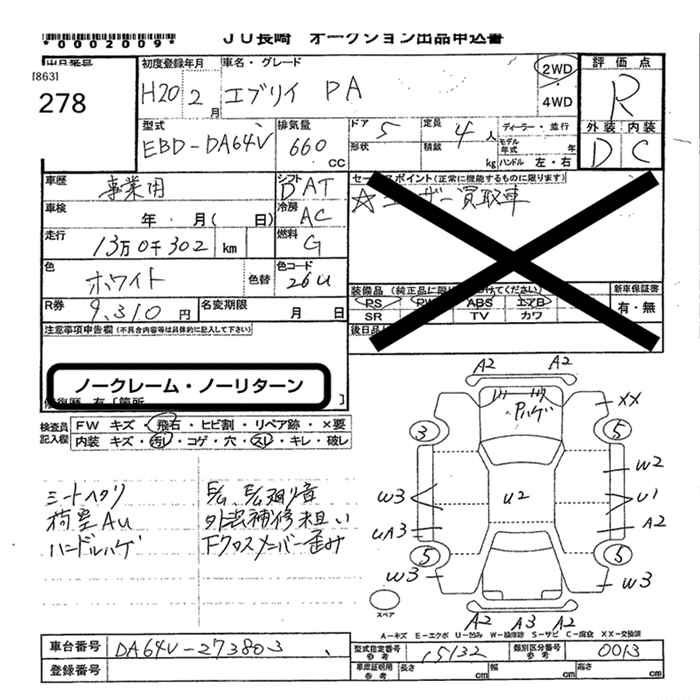 *0002009*
JU長崎 オークション出品申込書
[863]
278
初度登録年月 H20 2月
車名・グレード エブリイ PA
2WD
4WD
評価点 R
外装 内装
D C
型式 EBD-DA64V
排気量 660 CC
ドア 5
定員 4人
形状
積載 kg
ディーラー・並行
モデル年式 年
ハンドル 左・右
車歴 事業用
シフト DAT
セールスポイント(正常に機能するものに限ります)
☆ユーザー買取車
車検 年 月( 日)
冷房 AC
走行 13万0千302 km
燃料 G
色 ホワイト
色替
色コード 26U
装備品
PS PW ABS エアB
SR TV カワ
新車保証書
有・無
R券 9,310円
名変期限 月 日
後日品
注意事項申告欄(不具合内容等は具体的に記入して下さい)
ノークレーム・ノーリターン
修復歴 有[箇所 ]
検査員記入欄
FW キズ・飛石・ヒビ割・リペア跡・×要
内装 キズ・汚れ・コゲ・穴・スレ・キレ・破レ
シートヘタリ
荷室AU
ハンドルハゲ
外装補修粗い
下クロスメンバー歪み
A2 A2
Pハゲ
XX
3 5
W2
W3 U2 U1
UA3 A2
5 5
W3 W3
スペア
A2 A3 A2
A-キズ E-エクボ U-凹み W-補修跡 S-サビ C-腐食 XX-交換済
車台番号 DA64V-273803
登録番号
型式指定番号 参考 15132
類別区分番号 参考 0013
車庫証明用 参考 長さ cm 幅 cm 高さ cm